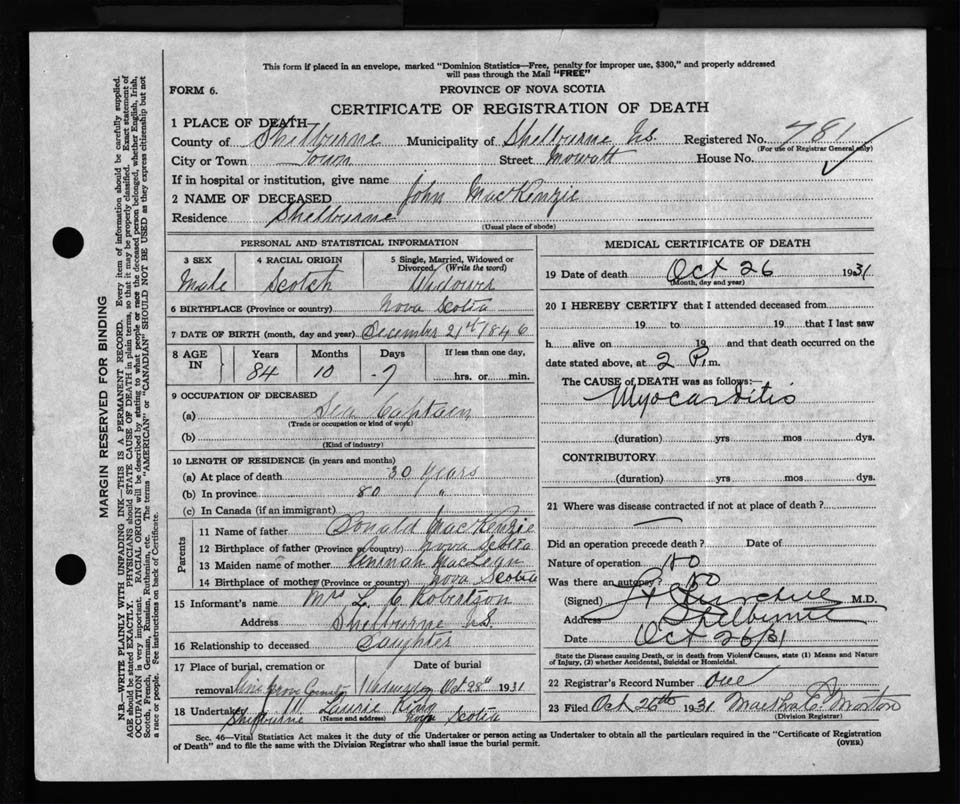 This form if placed in an envelope, marked "Dominion Statistics—Free, penalty for improper use, $300," and properly addressed
will pass through the Mail "FREE"
FORM 6.
PROVINCE OF NOVA SCOTIA
CERTIFICATE OF REGISTRATION OF DEATH
1 PLACE OF DEATH
County of Shelburne Municipality of Shelburne N.S. Registered No. 781
(For use of Registrar General only)
City or Town Town Street Mowatt House No.
If in hospital or institution, give name
2 NAME OF DECEASED John MacKenzie
Residence Shelburne
(Usual place of abode)
PERSONAL AND STATISTICAL INFORMATION
3 SEX 4 RACIAL ORIGIN 5 Single, Married, Widowed or
Divorced. (Write the word)
Male Scotch Widower
6 BIRTHPLACE (Province or country) Nova Scotia
7 DATE OF BIRTH (month, day and year) December 21st 1846
8 AGE IN Years Months Days If less than one day,
84 10 7 hrs. or min.
9 OCCUPATION OF DECEASED
(a) Sea Captain
(Trade or occupation or kind of work)
(b)
(Kind of industry)
10 LENGTH OF RESIDENCE (in years and months)
(a) At place of death 30 years
(b) In province 80 "
(c) In Canada (if an immigrant)
Parents
11 Name of father Donald MacKenzie
12 Birthplace of father (Province or country) Nova Scotia
13 Maiden name of mother MacLean
14 Birthplace of mother (Province or country) Nova Scotia
15 Informant's name Mrs L. C. Robertson
Address Shelburne N.S.
16 Relationship to deceased Daughter
17 Place of burial, cremation or Date of burial
removal Pine Grove Oct 28th 1931
18 Undertaker Laurie King
Shelburne (Name and address) Nova Scotia
MEDICAL CERTIFICATE OF DEATH
19 Date of death Oct 26 1931
(Month, day and year)
20 I HEREBY CERTIFY that I attended deceased from
19 to 19 that I last saw
h alive on 19 and that death occurred on the
date stated above, at 2 P.m.
The CAUSE of DEATH was as follows:
Myocarditis
(duration) yrs mos dys.
CONTRIBUTORY
(duration) yrs mos dys.
21 Where was disease contracted if not at place of death?
Did an operation precede death? Date of
Nature of operation No
Was there an autopsy? No
(Signed) M.D.
Address Shelburne
Date Oct 26/31
State the Disease causing Death, or in death from Violent Causes, state (1) Means and Nature
of Injury, (2) whether Accidental, Suicidal or Homicidal.
22 Registrar's Record Number One
23 Filed Oct 26th 1931 Martha C. Morton
(Division Registrar)
Sec. 46—Vital Statistics Act makes it the duty of the Undertaker or person acting as Undertaker to obtain all the particulars required in the "Certificate of Registration
of Death" and to file the same with the Division Registrar who shall issue the burial permit.
(OVER)
MARGIN RESERVED FOR BINDING
N.B.—WRITE PLAINLY WITH UNFADING INK—THIS IS A PERMANENT RECORD. Every item of information should be carefully supplied.
AGE should be stated EXACTLY. PHYSICIANS should STATE CAUSE OF DEATH in plain terms, so that it may be properly classified. Exact statement of
OCCUPATION is very important. RACIAL ORIGIN will be described by stating to what people or race the deceased person belonged, whether English, Irish,
Scotch, French, German, Russian, Ruthenian, etc. The terms "AMERICAN" or "CANADIAN" SHOULD NOT BE USED as they express citizenship but not
a race or people. See instructions on back of Certificate.